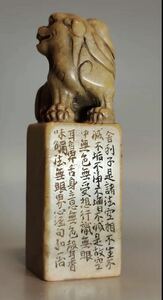 舍利子是諸法空相不生不
滅不垢不淨不增不減是故空
中無色無受想行識無眼
耳鼻舌身意無色聲香
味觸法無眼界